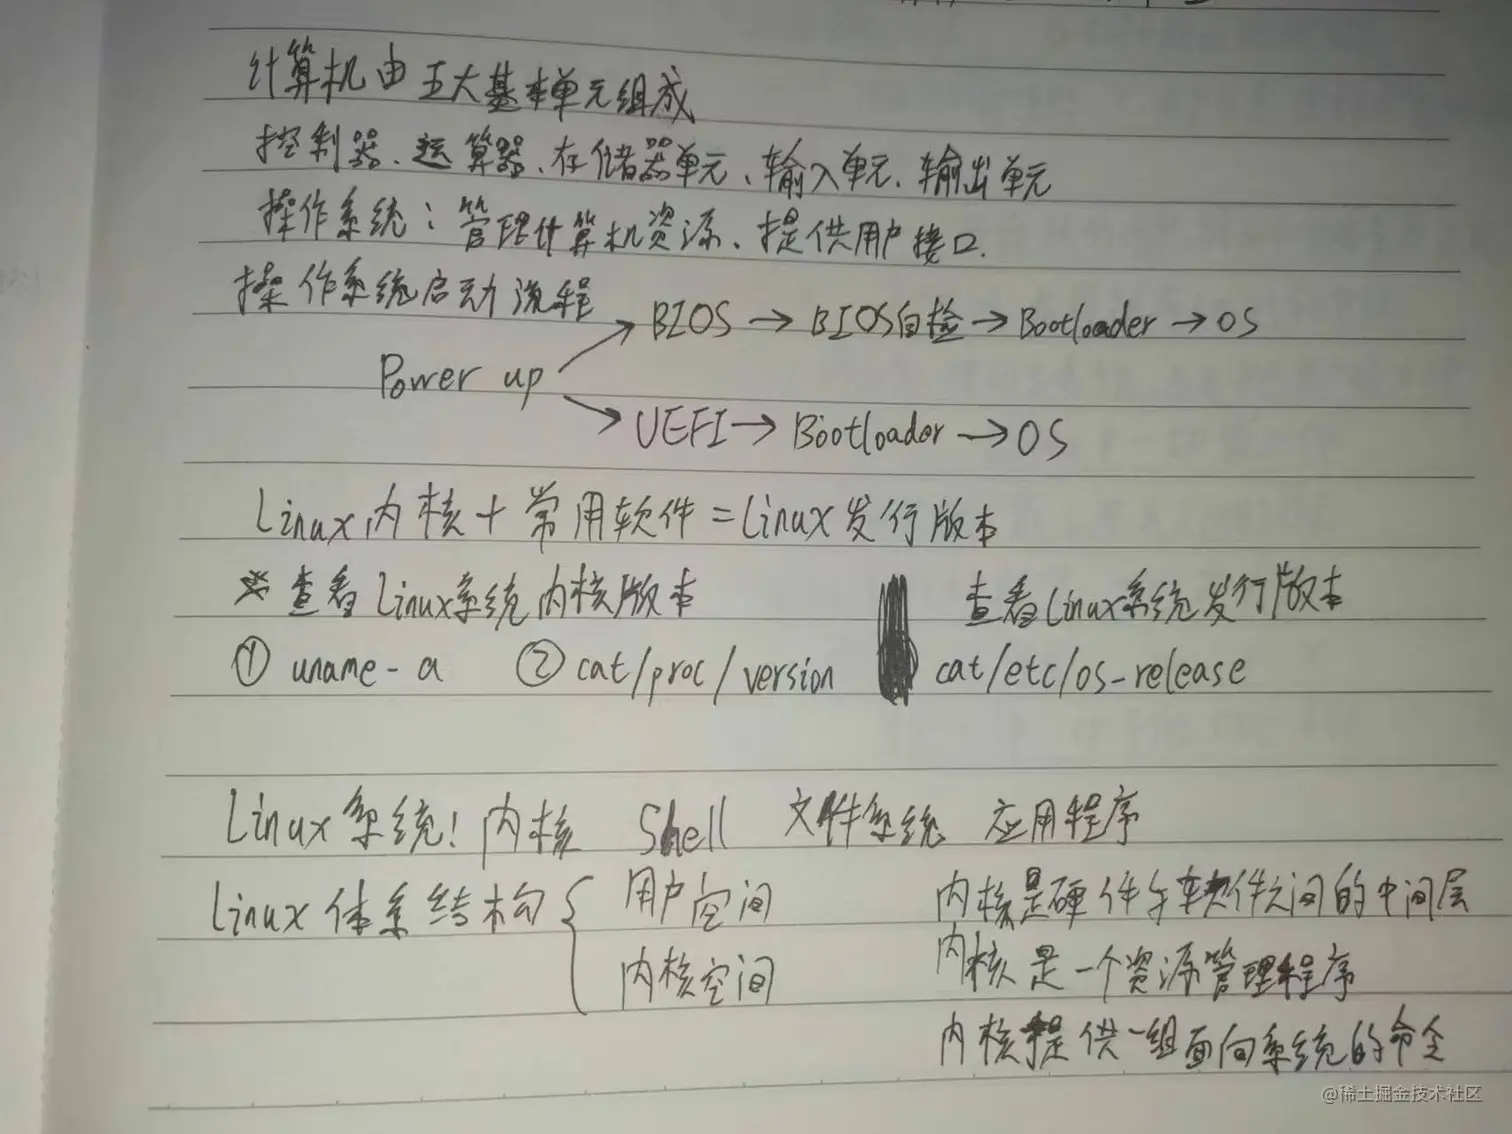 计算机由五大基本单元组成
控制器、运算器、存储器单元、输入单元、输出单元
操作系统：管理计算机资源、提供用户接口.
操作系统启动流程
BIOS → BIOS自检 → Bootloader → OS
Power up
UEFI → Bootloader → OS
Linux内核 + 常用软件 = Linux发行版本
※ 查看Linux系统内核版本 查看Linux系统发行版本
① uname-a ② cat/proc/version cat/etc/os-release
Linux系统! 内核 Shell 文件系统 应用程序
Linux体系结构 { 用户空间
内核空间
内核是硬件与软件之间的中间层
内核是一个资源管理程序
内核提供一组面向系统的命令
@稀土掘金技术社区